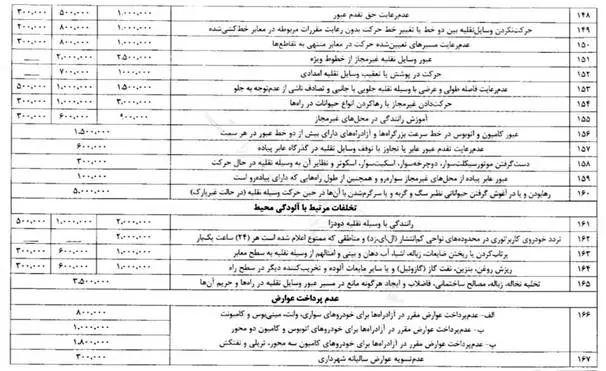 ۱۴۸ عدم‌رعایت حق تقدم عبور ۱،۰۰۰،۰۰۰ ۵۰۰،۰۰۰ ۳۰۰،۰۰۰
۱۴۹ حرکت‌نکردن وسایل‌نقلیه بین دو خط یا تغییر خط حرکت بدون رعایت مقررات مربوطه در معابر خط‌کشی‌شده ۱،۰۰۰،۰۰۰ ۸۰۰،۰۰۰ ۲۰۰،۰۰۰
۱۵۰ عدم‌رعایت مسیرهای تعیین‌شده حرکت در معابر منتهی به تقاطع‌ها ۱،۰۰۰،۰۰۰ ۸۰۰،۰۰۰ ۳۰۰،۰۰۰
۱۵۱ عبور وسایل نقلیه غیرمجاز از خطوط ویژه ۲،۵۰۰،۰۰۰ ۲،۰۰۰،۰۰۰ ــــ
۱۵۲ حرکت در پوشش یا تعقیب وسایل نقلیه امدادی ۱،۰۰۰،۰۰۰ ۷۰۰،۰۰۰ ــــ
۱۵۳ عدم‌رعایت فاصله طولی و عرضی با وسیله نقلیه جلویی یا جانبی و تصادف ناشی از عدم‌توجه به جلو ۱،۵۰۰،۰۰۰ ۱،۰۰۰،۰۰۰ ۵۰۰،۰۰۰
۱۵۴ حرکت‌دادن غیرمجاز یا رهاکردن انواع حیوانات در راه‌ها ۳،۰۰۰،۰۰۰ ۱،۰۰۰،۰۰۰ ۳۰۰،۰۰۰
۱۵۵ آموزش رانندگی در محل‌های غیرمجاز ۹۰۰،۰۰۰ ۶۰۰،۰۰۰ ۳۰۰،۰۰۰
۱۵۶ عبور کامیون و اتوبوس در خط سرعت بزرگراه‌ها و آزادراه‌های دارای بیش از دو خط عبور در هر سمت ۱،۵۰۰،۰۰۰
۱۵۷ عدم‌رعایت تقدم عبور عابر یا تجاوز یا توقف وسایل نقلیه در گذرگاه عابر پیاده ۶۰۰،۰۰۰
۱۵۸ دست‌گرفتن موتورسیکلت‌سوار، دوچرخه‌سوار، اسکیت‌سوار، اسکوتر و نظایر آن به وسیله نقلیه در حال حرکت ۳۰۰،۰۰۰
۱۵۹ عابر پیاده از محل‌های غیرمجاز سواره‌رو و همچنین از طول راه‌هایی که دارای پیاده‌رو است ۱۰۰،۰۰۰
۱۶۰ رهابودن و یا در آغوش گرفتن حیواناتی نظیر سگ و گربه و یا سرگرم‌شدن با آن‌ها در حین حرکت وسیله نقلیه (در حالت غیرپارک) ۵،۰۰۰،۰۰۰
تخلفات مرتبط با آلودگی محیط
۱۶۱ رانندگی با وسیله نقلیه دودزا ۲،۰۰۰،۰۰۰ ۱،۰۰۰،۰۰۰ ۵۰۰،۰۰۰
۱۶۲ تردد خودروی کاربراتوری در محدوده‌های نواحی کم‌انتشار (ال‌ای‌زد) و مناطقی که ممنوع اعلام شده است هر (۲۴) ساعت یک‌بار ۲،۰۰۰،۰۰۰
۱۶۳ پرتاب‌کردن یا ریختن ضایعات، زباله، اشیا، آب دهان و بینی و امثالهم از وسایل نقلیه به سطح معابر ۱،۰۰۰،۰۰۰ ۶۰۰،۰۰۰ ۳۰۰،۰۰۰
۱۶۴ ریزش روغن، بنزین، نفت گاز (گازوئیل) و یا سایر مایعات آلوده و تخریب‌کننده دیگر در سطح راه ۱،۰۰۰،۰۰۰ ۶۰۰،۰۰۰ ۳۰۰،۰۰۰
۱۶۵ تخلیه نخاله، زباله، مصالح ساختمانی، فاضلاب و ایجاد هرگونه مانع در مسیر عبور وسایل نقلیه در راه‌ها و حریم آن‌ها ۳،۵۰۰،۰۰۰
عدم پرداخت عوارض
۱۶۶ الف- عدم‌پرداخت عوارض مقرر در آزادراه‌ها برای خودروهای سواری، وانت، مینی‌بوس و کامیونت ۸۰۰،۰۰۰
ب- عدم‌پرداخت عوارض مقرر در آزادراه‌ها برای خودروهای اتوبوس و کامیون دو محور ۱،۰۰۰،۰۰۰
پ- عدم‌پرداخت عوارض مقرر در آزادراه‌ها برای خودروهای کامیون سه محور، تریلی و نفتکش ۱،۸۰۰،۰۰۰
۱۶۷ عدم‌تسویه عوارض سالیانه شهرداری ۳۰۰،۰۰۰